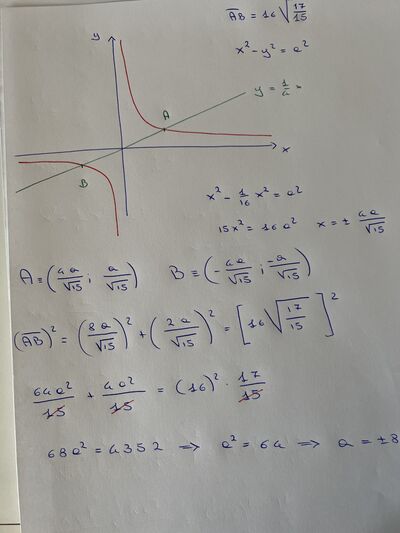 A̅B̅ = 16√(17/15)
x² - y² = a²
y
y = 1/4 x
A
x
B
x² - 1/16 x² = a²
15x² = 16a² x = ± 4a/√15
A ≡ (4a/√15 ; a/√15) B ≡ (-4a/√15 ; -a/√15)
(A̅B̅)² = (8a/√15)² + (2a/√15)² = [16√(17/15)]²
64a²/15 + 4a²/15 = (16)² · 17/15
68a² = 4352 ⇒ a² = 64 ⇒ a = ±8